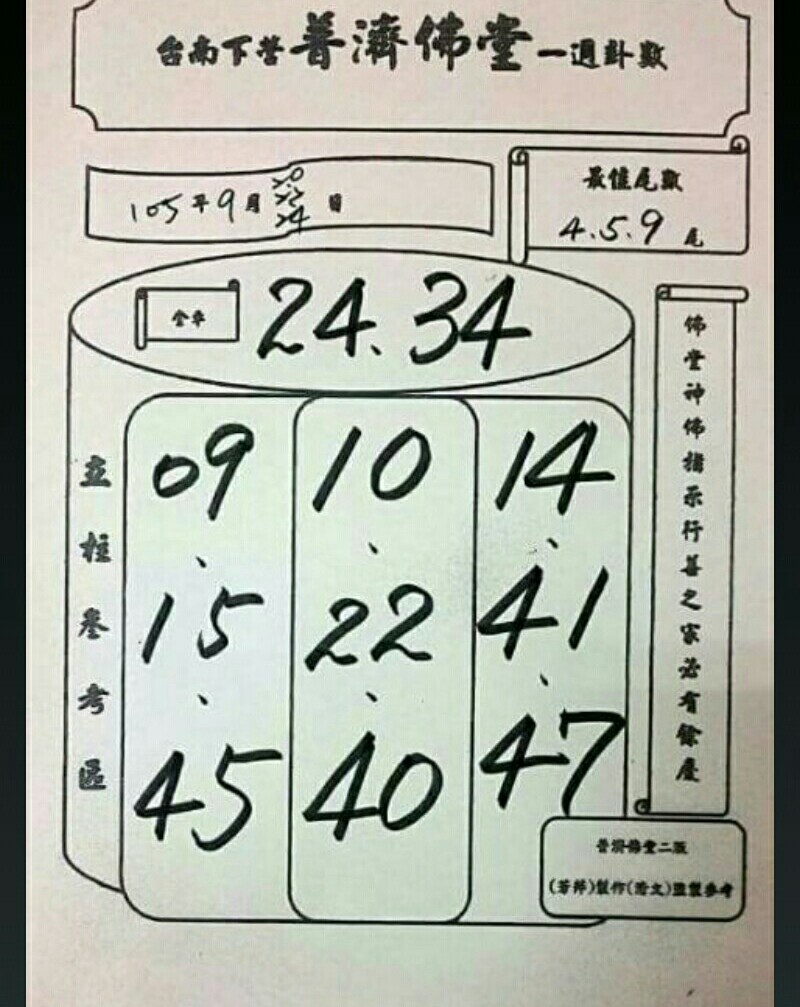 台南下營普濟佛堂一週卦數
105年9月20.22.24日
最佳尾數
4.5.9尾
全車
24.34
佛堂神佛指示行善之家必有餘慶
立柱叄考區
09、15、45
10、22、40
14、41、47
普濟佛堂二版
製作
監製參考